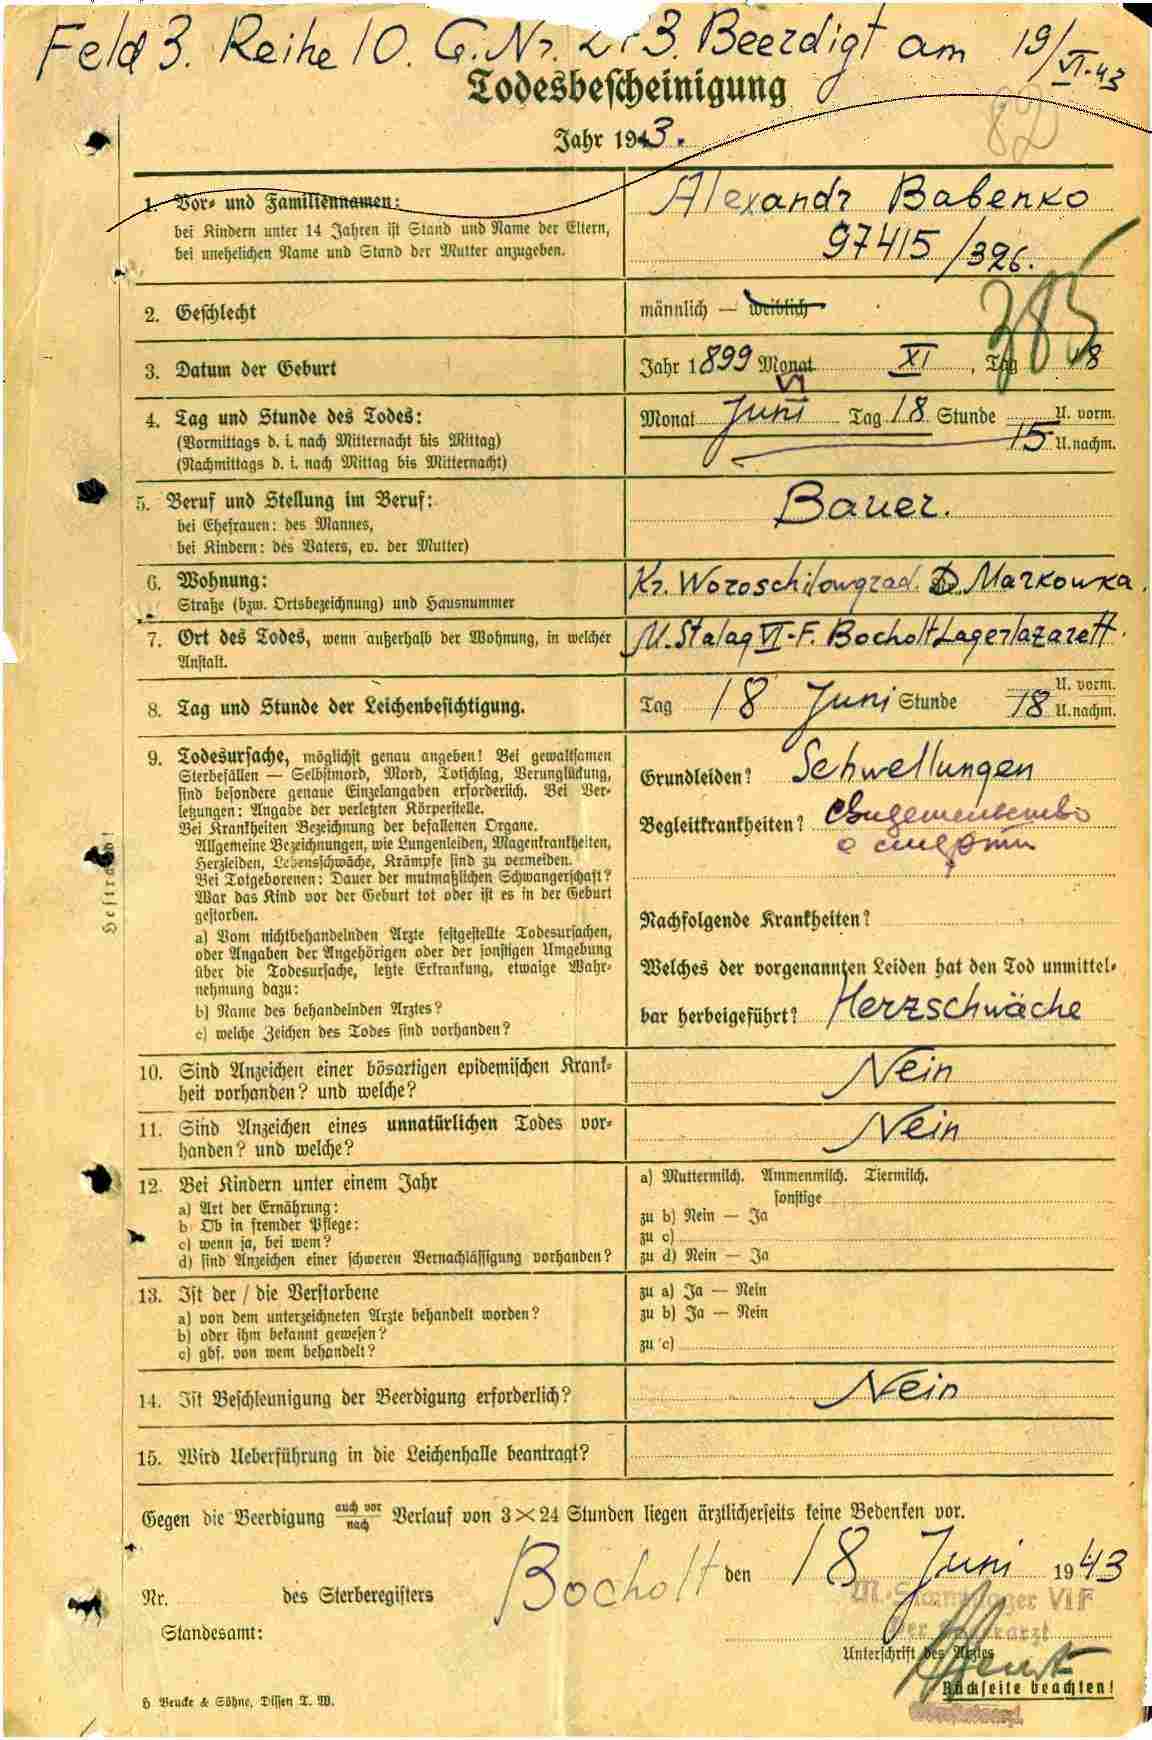 Feld 3. Reihe 10. G. Nr. 3. Beerdigt am 19/VI.43
Todesbescheinigung
82
Jahr 1943.
1. Vor- und Familiennamen: Alexandr Babenko
bei Kindern unter 14 Jahren ist Stand und Name der Eltern,
bei unehelichen Name und Stand der Mutter anzugeben. 97415/326.
385
2. Geschlecht männlich — weiblich
3. Datum der Geburt Jahr 1899 Monat XI, Tag 18
VI
4. Tag und Stunde des Todes: Monat Juni Tag 18 Stunde U. vorm.
(Vormittags d. i. nach Mitternacht bis Mittag) 15 U. nachm.
(Nachmittags d. i. nach Mittag bis Mitternacht)
5. Beruf und Stellung im Beruf: Bauer.
bei Ehefrauen: des Mannes,
bei Kindern: des Vaters, ev. der Mutter)
6. Wohnung: Kr. Woroschilowgrad. D. Markowka.
Straße (bzw. Ortsbezeichnung) und Hausnummer
7. Ort des Todes, wenn außerhalb der Wohnung, in welcher M. Stalag VI-F. Bocholt Lagerlazarett.
Anstalt.
8. Tag und Stunde der Leichenbesichtigung. Tag 18 Juni Stunde U. vorm.
18 U. nachm.
9. Todesursache, möglichst genau angeben! Bei gewaltsamen
Sterbefällen — Selbstmord, Mord, Totschlag, Verunglückung,
sind besondere genaue Einzelangaben erforderlich. Bei Ver-
letzungen: Angabe der verletzten Körperstelle.
Bei Krankheiten Bezeichnung der befallenen Organe.
Allgemeine Bezeichnungen, wie Lungenleiden, Magenkrankheiten,
Herzleiden, Lebensschwäche, Krämpfe sind zu vermeiden.
Bei Totgeborenen: Dauer der mutmaßlichen Schwangerschaft?
War das Kind vor der Geburt tot oder ist es in der Geburt
gestorben.
a) Vom nichtbehandelnden Arzte festgestellte Todesursachen,
oder Angaben der Angehörigen oder der sonstigen Umgebung
über die Todesursache, letzte Erkrankung, etwaige Wahr-
nehmung dazu:
b) Name des behandelnden Arztes?
c) welche Zeichen des Todes sind vorhanden?
Grundleiden? Schwellungen
Begleitkrankheiten? свидетельство
о смерти
Nachfolgende Krankheiten?
Welches der vorgenannten Leiden hat den Tod unmittel-
bar herbeigeführt? Herzschwäche
Heftrand!
10. Sind Anzeichen einer bösartigen epidemischen Krank-
heit vorhanden? und welche? Nein
11. Sind Anzeichen eines unnatürlichen Todes vor-
handen? und welche? Nein
12. Bei Kindern unter einem Jahr
a) Art der Ernährung:
b) Ob in fremder Pflege:
c) wenn ja, bei wem?
d) sind Anzeichen einer schweren Vernachlässigung vorhanden?
a) Muttermilch. Ammenmilch. Tiermilch.
sonstige
zu b) Nein — Ja
zu c)
zu d) Nein — Ja
13. Ist der / die Verstorbene
a) von dem unterzeichneten Arzte behandelt worden?
b) oder ihm bekannt gewesen?
c) gbf. von wem behandelt?
zu a) Ja — Nein
zu b) Ja — Nein
zu c)
14. Ist Beschleunigung der Beerdigung erforderlich? Nein
15. Wird Ueberführung in die Leichenhalle beantragt?
Gegen die Beerdigung auch vor / nach Verlauf von 3×24 Stunden liegen ärztlicherseits keine Bedenken vor.
Bocholt den 18 Juni 1943
Nr. des Sterberegisters
M.-Stammlager VI F
Der Lagerarzt
Standesamt:
Unterschrift des Arztes
Rückseite beachten!
H Beucke & Söhne, Dissen T. W.